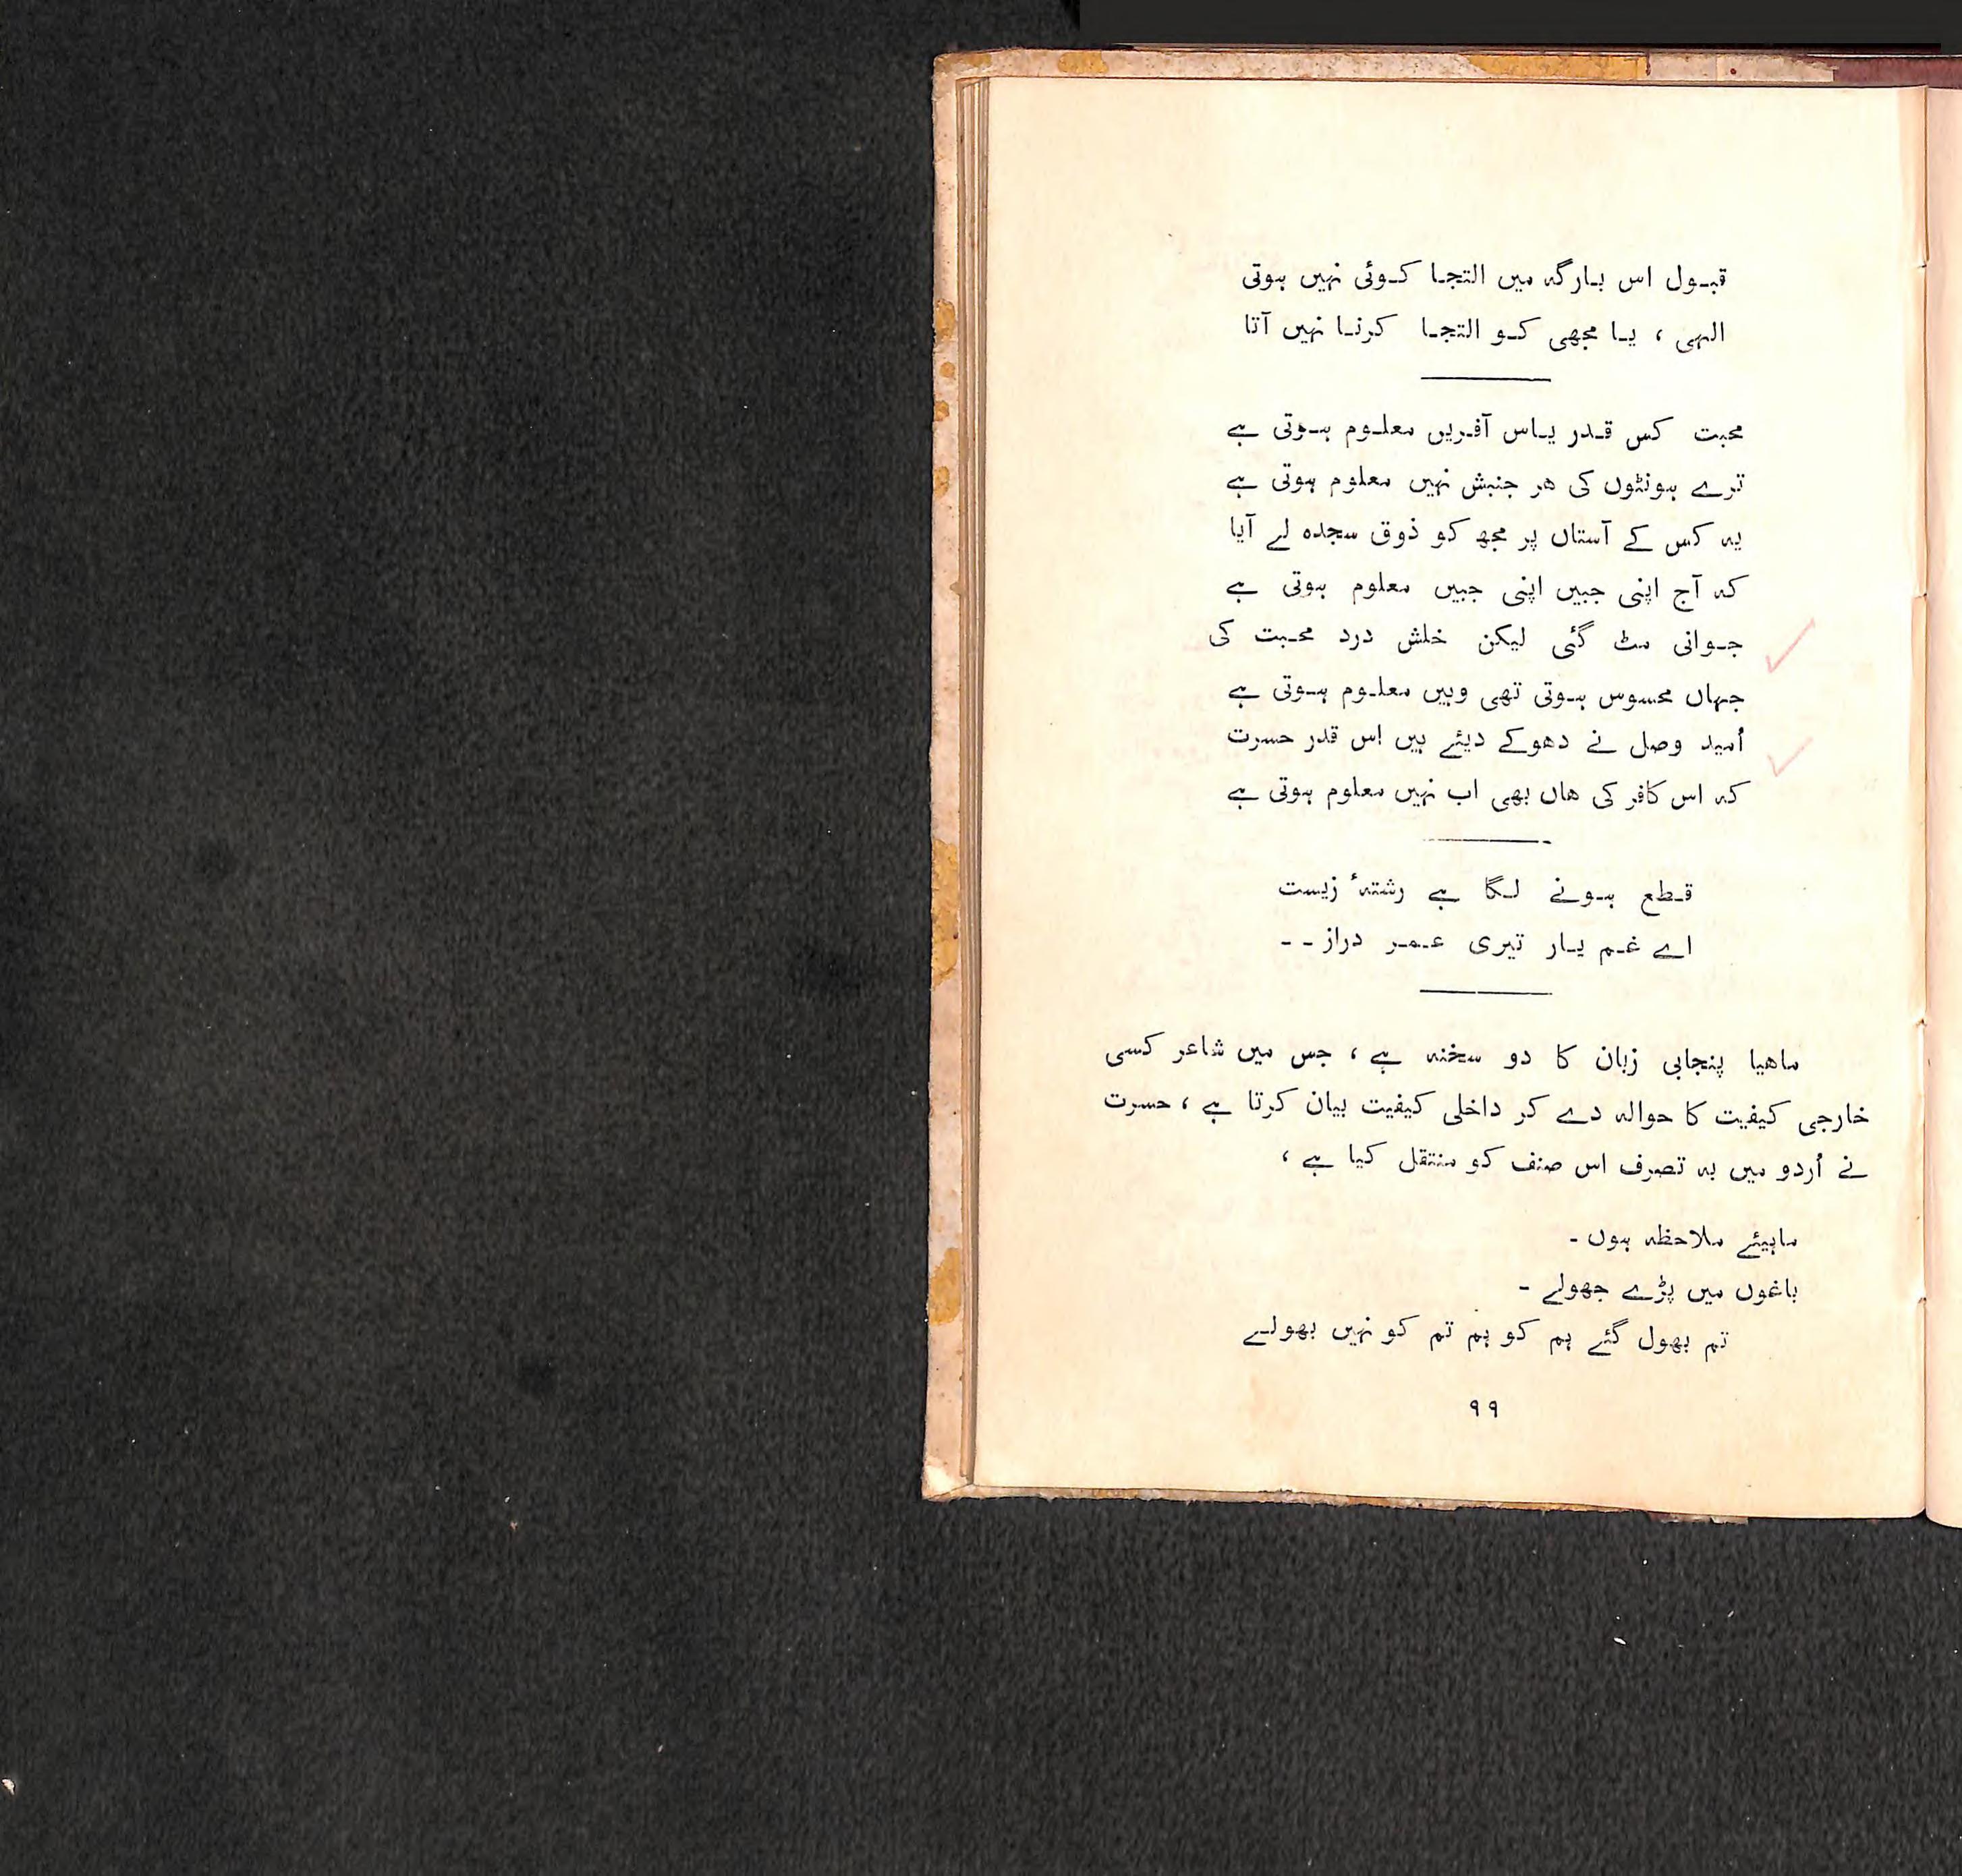 قبول اس بارگہ میں التجا کوئی نہیں ہوتی
الہی ، یا مجھی کو التجا کرنا نہیں آتا
محبت کس قدر یاس آفریں معلوم ہوتی ہے
ترے ہونٹوں کی ھر جنبش نہیں معلوم ہوتی ہے
یہ کس کے آستاں پر مجھ کو ذوق سجدہ لے آیا
کہ آج اپنی جبیں اپنی جبیں معلوم ہوتی ہے
جوانی مٹ گئی لیکن خلش درد محبت کی
جہاں محسوس ہوتی تھی وہیں معلوم ہوتی ہے
اُمید وصل نے دھوکے دیئے ہیں اس قدر حسرت
کہ اس کافر کی ھاں بھی اب نہیں معلوم ہوتی ہے
قطع ہونے لگا ہے رشتہٴ زیست
اے غم یار تیری عمر دراز - -
ماھیا پنجابی زبان کا دو سخنہ ہے ، جس میں شاعر کسی
خارجی کیفیت کا حوالہ دے کر داخلی کیفیت بیان کرتا ہے ، حسرت
نے اُردو میں بہ تصرف اس صنف کو منتقل کیا ہے ،
ماہیئے ملاحظہ ہوں -
باغوں میں پڑے جھولے -
تم بھول گئے ہم کو ہم تم کو نہیں بھولے
۹۹